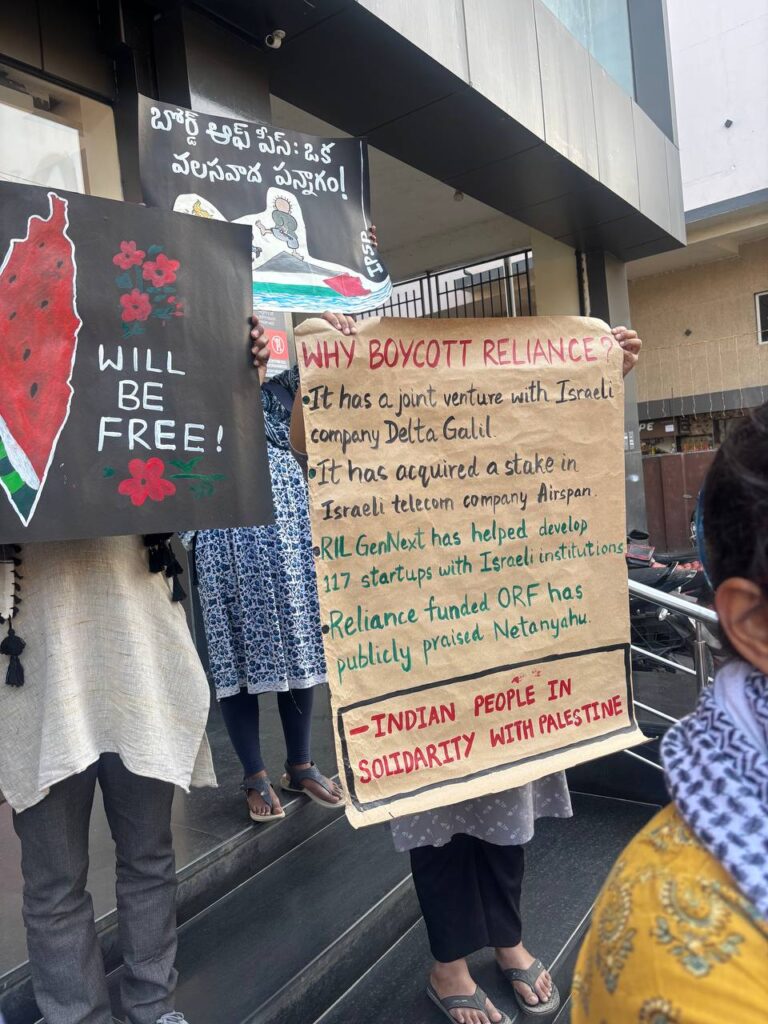 బోర్డ్ ఆఫ్ పీస్: ఒక
వలసవాద పన్నాగం!
IPSP
WILL
BE
FREE!
WHY BOYCOTT RELIANCE?
•It has a joint venture with Israeli
company Delta Galil.
•It has acquired a stake in
Israeli telecom company Airspan.
•RIL GenNext has helped develop
117 startups with Israeli institutions
•Reliance funded ORF has
publicly praised Netanyahu.
–INDIAN PEOPLE IN
SOLIDARITY WITH PALESTINE